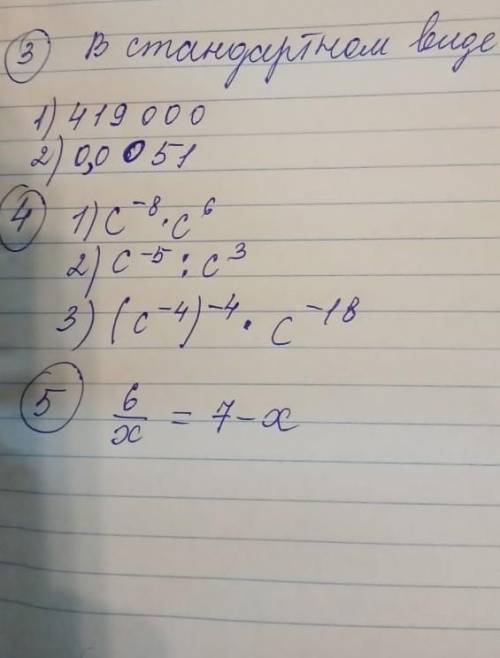 ③ В стандартном виде
1) 419 000
2) 0,0051
④ 1) c⁻⁸ · c⁶
2) c⁻⁵ : c³
3) (c⁻⁴)⁻⁴ · c⁻¹⁸
⑤ 6/x = 7 - x